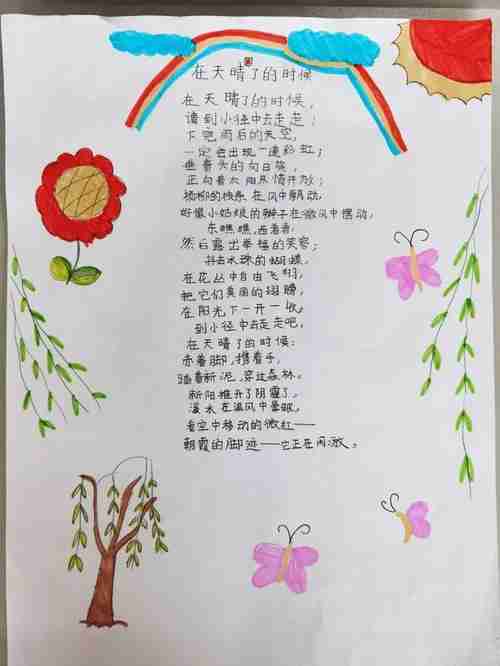 在天晴了的时候
在天晴了的时候，
请到小径中去走走；
下吧雨后的天空，
一定会出现一道彩虹；
垂着头的向日葵，
正向着太阳尽情开放；
杨柳的枝条在风中飘动，
好像小姑娘的辫子在微风中摆动，
东瞧瞧，西看看，
然后露出幸福的笑容；
抖去水珠的蝴蝶
在花丛中自由飞翔，
把它们美丽的翅膀
在阳光下一开一收。
到小径中去走走吧，
在天晴了的时候：
赤着脚，携着手，
踏着新泥，穿过森林。
新阳推开了阴霾了，
溪水在温风中晕皱，
看空中移动的微红——
朝霞的脚迹——它正在闲游。